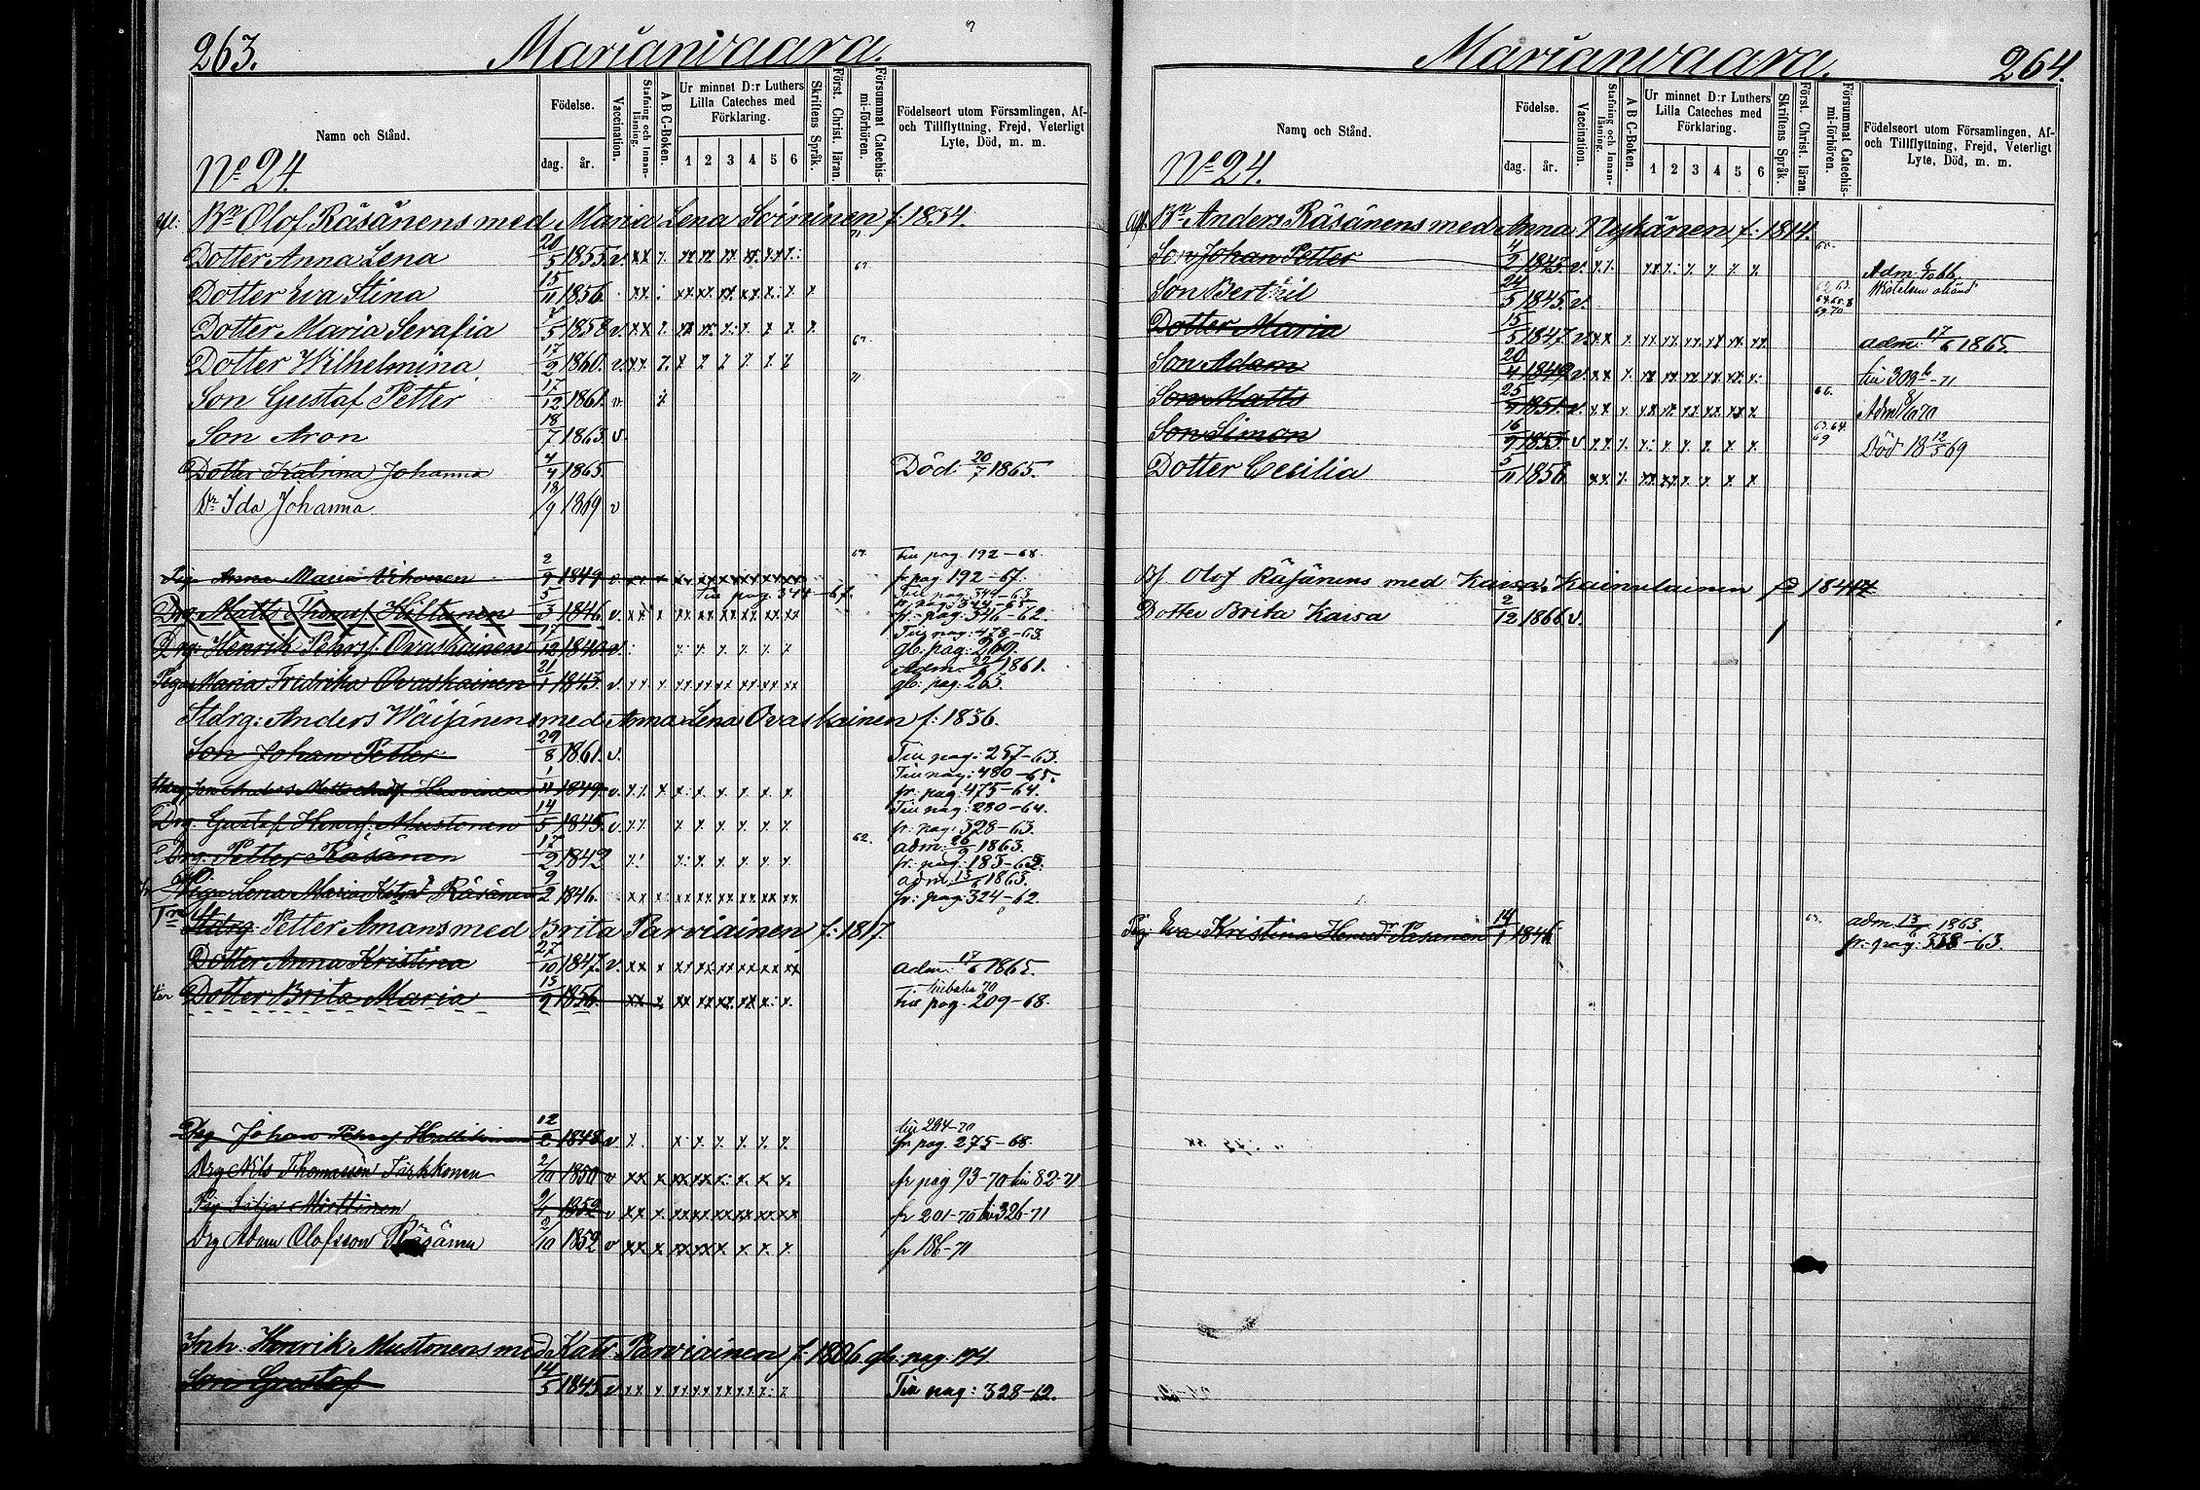 263.
Marianvaara.
Namn och Stånd.
Födelse.
dag.
år.
Vaccination.
Stafning och Innan-läsning.
A B C-Boken.
Ur minnet D:r Luthers
Lilla Cateches med
Förklaring.
1 2 3 4 5 6
Skriftens Språk.
Först. Christ. läran.
Försummat Catechis-mi-förhören.
Födelseort utom Församlingen, Af-
och Tillflyttning, Frejd, Veterligt
Lyte, Död, m. m.
No 24.
Bn Olof Räsänens med Maria Lena Soininen f: 1834.
Dotter Anna Lena 20/5 1855. v.
Dotter Eva Stina 15/11 1856.
Dotter Maria Serafia 2/5 1858 v.
Dotter Wilhelmina 17/2 1860. v.
Son Gustaf Petter 17/12 1861. v.
Son Aron 18/7 1863 v.
Dotter Katrina Johanna 4/4 1865. Död 20/7 1865.
Dr Ida Johanna 18/9 1869 v
Till pag. 192-68.
Pig. Anna Maria 2/9 1849 v fr pag 192-67.
Till pag. 344-67.
Till pag: 344-63
Drg. Matts Thomsf. Kiltunen 5/3 1846. v. fr: pag: 346-62.
Till pag: 478-63.
Drg: Henrik Pehrsf. Ovaskainen 17/12 1840 v. gb: pag: 269.
Adm. 22/6 1861.
Piga Maria Fredrika Ovaskainen 21/1 1843. v. gb: pag: 263.
Stdrg: Anders Wäisänens med Anna Lena Ovaskainen f: 1836.
Son Johan Petter 29/8 1861. v. Till pag: 257-63.
Till pag: 480-65.
1/11 1849 v. fr: pag: 475-64.
Till pag: 280-64.
Drg. Gustaf Henrsf. Mustonen 14/5 1845. v. fr. pag: 328-63.
adm: 26/9 1863.
Drg: Petter Räsänen 17/2 1842 fr: pag: 183-63.
adm: 13/6 1863.
Piga Lena Maria Räsänen 9/2 1846. fr: pag: 324-62.
Stdrg. Petter Amans med Brita Parviainen f: 1817.
Dotter Anna Kristina 27/10 1847. v. adm: 17/6 1865.
Dotter Brita Maria 15/9 1856. Till pag. 209-68.
till 294-70
Drg Johan Pehrsf 12/2 1848 v fr pag 275-68
Drg Nils Thomasson Turkkonen 2/10 1850 v fr pag 93-70 till 82-71
Pig Miettinen 1852 v fr 201-70 till 326-71
Drg Adam Olofsson Räsänen 2/10 1852 v fr 186-71
Inh. Henrik Mustonens med Kat: Parviainen f: 1806. gb: pag. 174.
Son Gustaf 14/5 1845 v Till pag: 328-62.
Marianvaara.
264.
Namn och Stånd.
Födelse.
dag.
år.
Vaccination.
Stafning och Innan-läsning.
A B C-Boken.
Ur minnet D:r Luthers
Lilla Cateches med
Förklaring.
1 2 3 4 5 6
Skriftens Språk.
Först. Christ. läran.
Försummat Catechis-mi-förhören.
Födelseort utom Församlingen, Af-
och Tillflyttning, Frejd, Veterligt
Lyte, Död, m. m.
No 24.
Bn Anders Räsänens med Anna Nykänen f: 1814.
Son Johan Petter 4/2 1843. v.
Son Berthil 24/5 1845. v.
Dotter Maria 15/5 1847. v. adm: 17/6 1865.
Son Adam 20/4 1849. v. till 309 -71
Son Matts 25/9 1851. v.
Son Simon 16/9 1853 v Död 18 12/5 69
Dotter Cecilia 5/11 1856
Bf Olof Räsänens med Kaisa Kainulainen
Dotter Brita Kaisa 2/12 1866 v.
Pig Eva Kristina Henrsdr Pasanen 14/1 1846 adm. 13/6 1863.
fr: pag: 328-63.